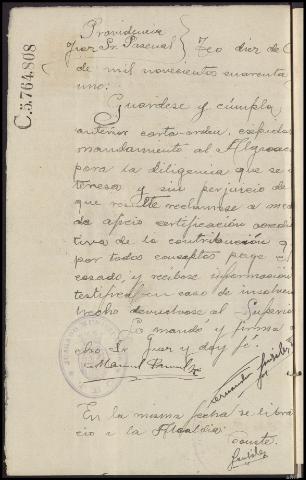 C.5.764.808
Providencia
Juez Sr. Pascual } Teo diez de
de mil novecientos cuarenta
uno:
Guárdese y cúmpla
anterior carta-orden,
mandamiento al Alguac
para la diligencia que se
teresa y sin perjuicio de
que resulte reclámese a me
de oficio certificación acredi
tiva de la contribución q
por todos conceptos page el
cesado, y recíbese información
testifical en caso de insolven
hecho devuélvase al Superior
Lo mandó y firma
cho Sr. Juez y doy fé.
Manuel Pascual
Fernando
En la misma fecha se libra
cio a la Alcaldía